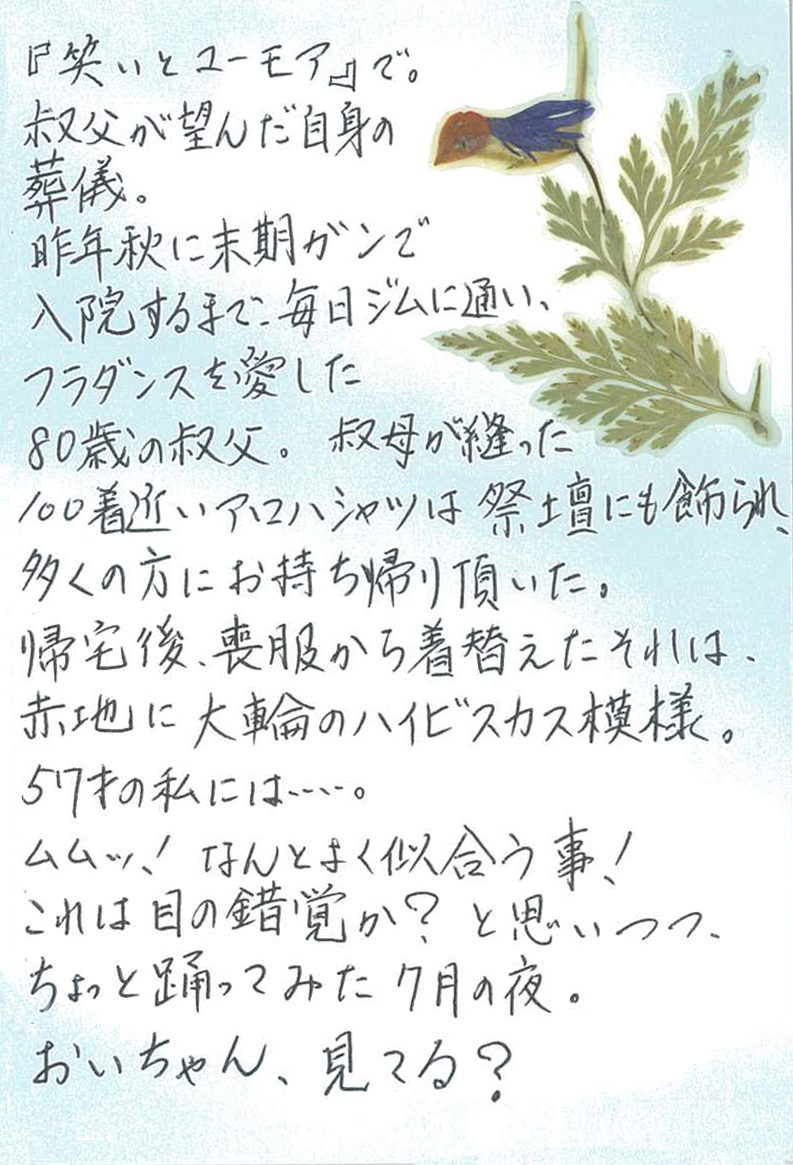 『笑いとユーモア』で。
叔父が望んだ自身の
葬儀。
昨年秋に末期ガンで
入院するまで、毎日ジムに通い、
フラダンスを愛した
80歳の叔父。叔母が縫った
100着近いアロハシャツは祭壇にも飾られ、
多くの方にお持ち帰り頂いた。
帰宅後、喪服から着替えたそれは、
赤地に大輪のハイビスカス模様。
57才の私には……。
ムムッ、！なんとよく似合う事！
これは目の錯覚か？と思いつつ、
ちょっと踊ってみた7月の夜。
おいちゃん、見てる？